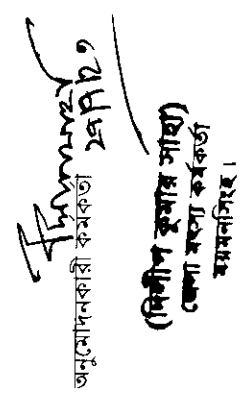 অনুমোদনকারী কর্মকর্তা
(দিলীপ কুমার সাহা)
জেলা মৎস্য কর্মকর্তা
ময়মনসিংহ।